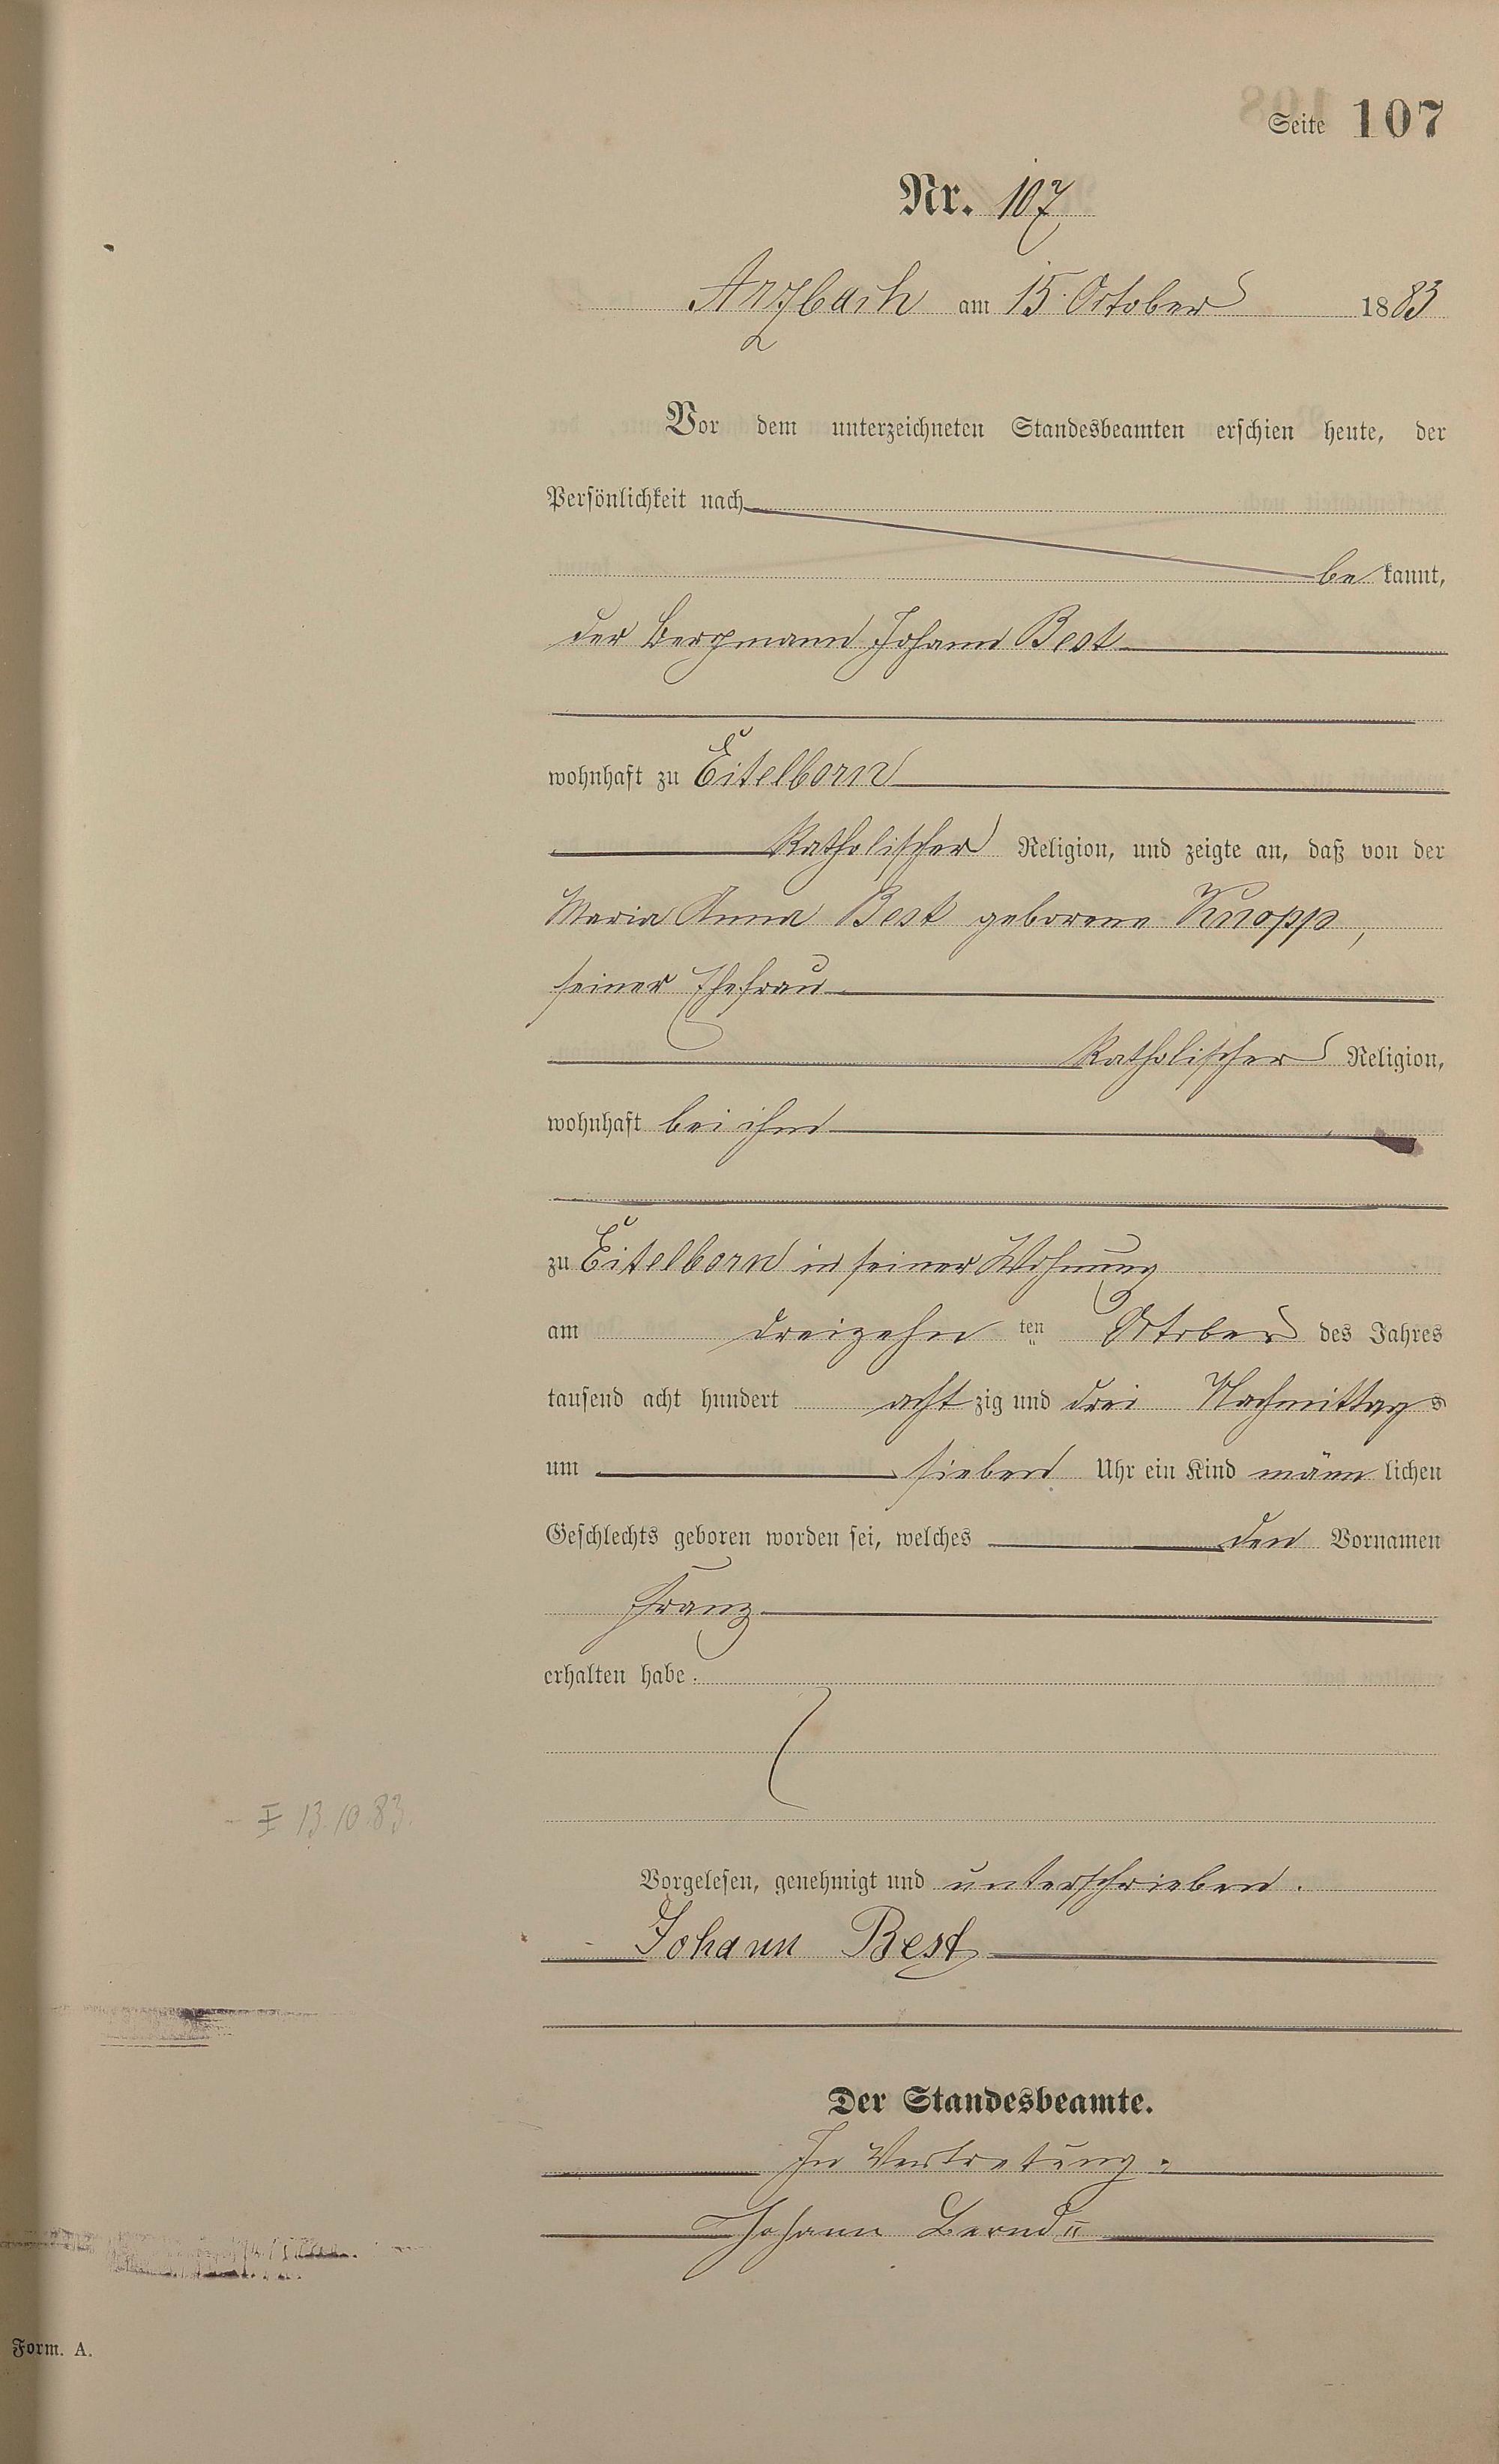 Seite 107
Nr. 107
Arzbach am 15. October 1883
Vor dem unterzeichneten Standesbeamten erschien heute, der
Persönlichkeit nach
be kannt,
der Bergmann Johann Best
wohnhaft zu Eitelborn
katholischer Religion, und zeigte an, daß von der
Maria Anna Best geborene Knopp,
seiner Ehefrau
katholischer Religion,
wohnhaft bei ihm
zu Eitelborn in seiner Wohnung
am dreizehn ten October des Jahres
tausend acht hundert acht zig und drei Nachmittags
um sieben Uhr ein Kind männ lichen
Geschlechts geboren worden sei, welches den Vornamen
Franz
erhalten habe.
13.10.83.
Vorgelesen, genehmigt und unterschrieben.
Johann Best
Der Standesbeamte.
In Vertretung:
Johann Bernd
Form. A.